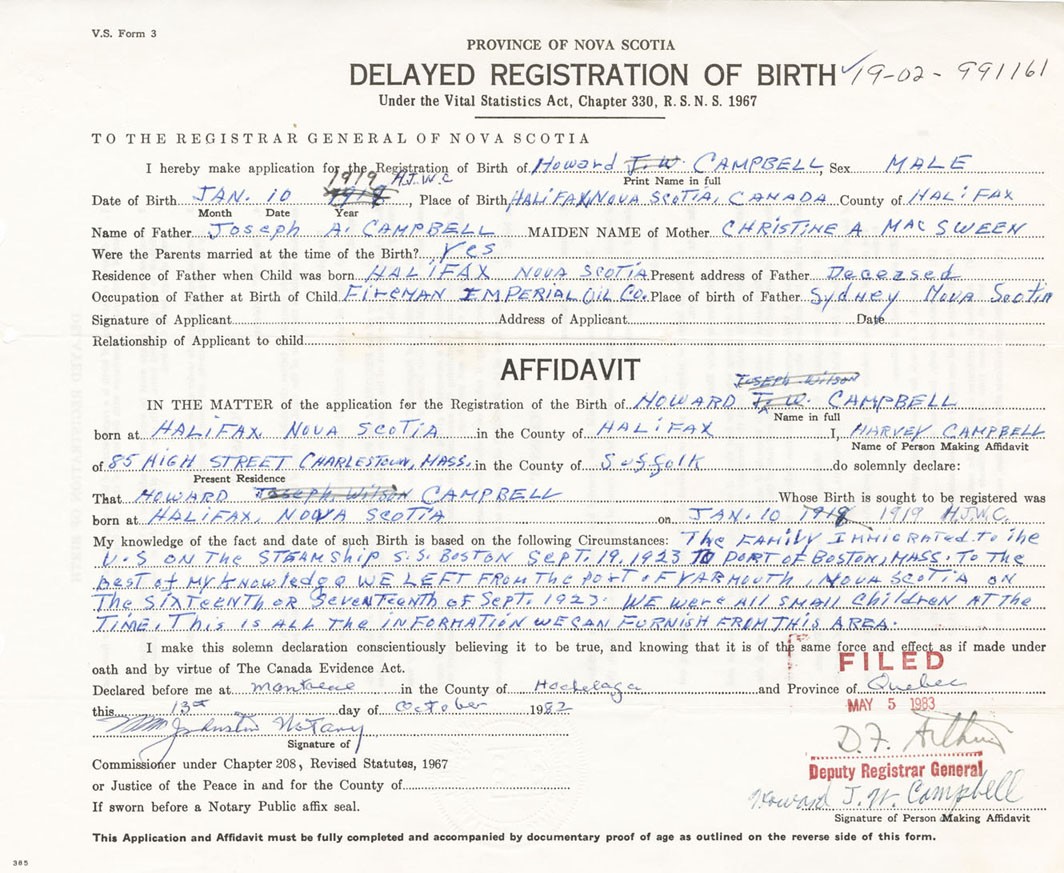 V.S. Form 3
PROVINCE OF NOVA SCOTIA
DELAYED REGISTRATION OF BIRTH ✓19-02-991161
Under the Vital Statistics Act, Chapter 330, R. S. N. S. 1967
TO THE REGISTRAR GENERAL OF NOVA SCOTIA
I hereby make application for the Registration of Birth of Howard J. W. CAMPBELL, Sex MALE
Print Name in full
1919 H.J.W.C
Date of Birth JAN. 10 1918, Place of Birth HALIFAX, NOVA SCOTIA, CANADA County of HALIFAX
Month Date Year
Name of Father Joseph A. CAMPBELL MAIDEN NAME of Mother CHRISTINE A MACSWEEN
Were the Parents married at the time of the Birth? Yes
Residence of Father when Child was born HALIFAX NOVA SCOTIA Present address of Father Deceased
Occupation of Father at Birth of Child FireMAN IMPERIAL OIL CO. Place of birth of Father Sydney Nova Scotia
Signature of Applicant Address of Applicant Date
Relationship of Applicant to child
AFFIDAVIT
JOSEPH WILSON
IN THE MATTER of the application for the Registration of the Birth of HOWARD J. W. CAMPBELL
Name in full
born at HALIFAX NOVA SCOTIA in the County of HALIFAX I, HARVEY CAMPBELL
Name of Person Making Affidavit
of 85 HIGH STREET CHARLESTOWN, MASS. in the County of Suffolk do solemnly declare:
Present Residence
That HOWARD Joseph Wilson CAMPBELL Whose Birth is sought to be registered was
born at HALIFAX, NOVA SCOTIA on JAN. 10 1918 1919 H.J.W.C.
My knowledge of the fact and date of such Birth is based on the following Circumstances: The FAMILY IMMIGRATED To the
U.S ON THE STEAMSHIP S.S. BOSTON SEPT. 19, 1923 TO PORT OF BOSTON, MASS. To THE
Best of My Knowledge WE LEFT FROM THE PORT OF YARMOUTH NOVA SCOTIA ON
The SIXTEENTH OR SEVENTEENTH OF SEPT. 1923. WE Were All SMALL Children AT THE
TIME. THIS IS ALL THE INFORMATION WE CAN FURNISH FROM THIS AREA.
I make this solemn declaration conscientiously believing it to be true, and knowing that it is of the same force and effect as if made under
oath and by virtue of The Canada Evidence Act.
FILED
Declared before me at Montreal in the County of Hochelaga and Province of Quebec
MAY 5 1983
this 13th day of October 1982
Johnston Notary
Signature of
D.F. Arthur
Commissioner under Chapter 208, Revised Statutes, 1967
Deputy Registrar General
or Justice of the Peace in and for the County of
Howard J. W. Campbell
If sworn before a Notary Public affix seal.
Signature of Person Making Affidavit
This Application and Affidavit must be fully completed and accompanied by documentary proof of age as outlined on the reverse side of this form.
385